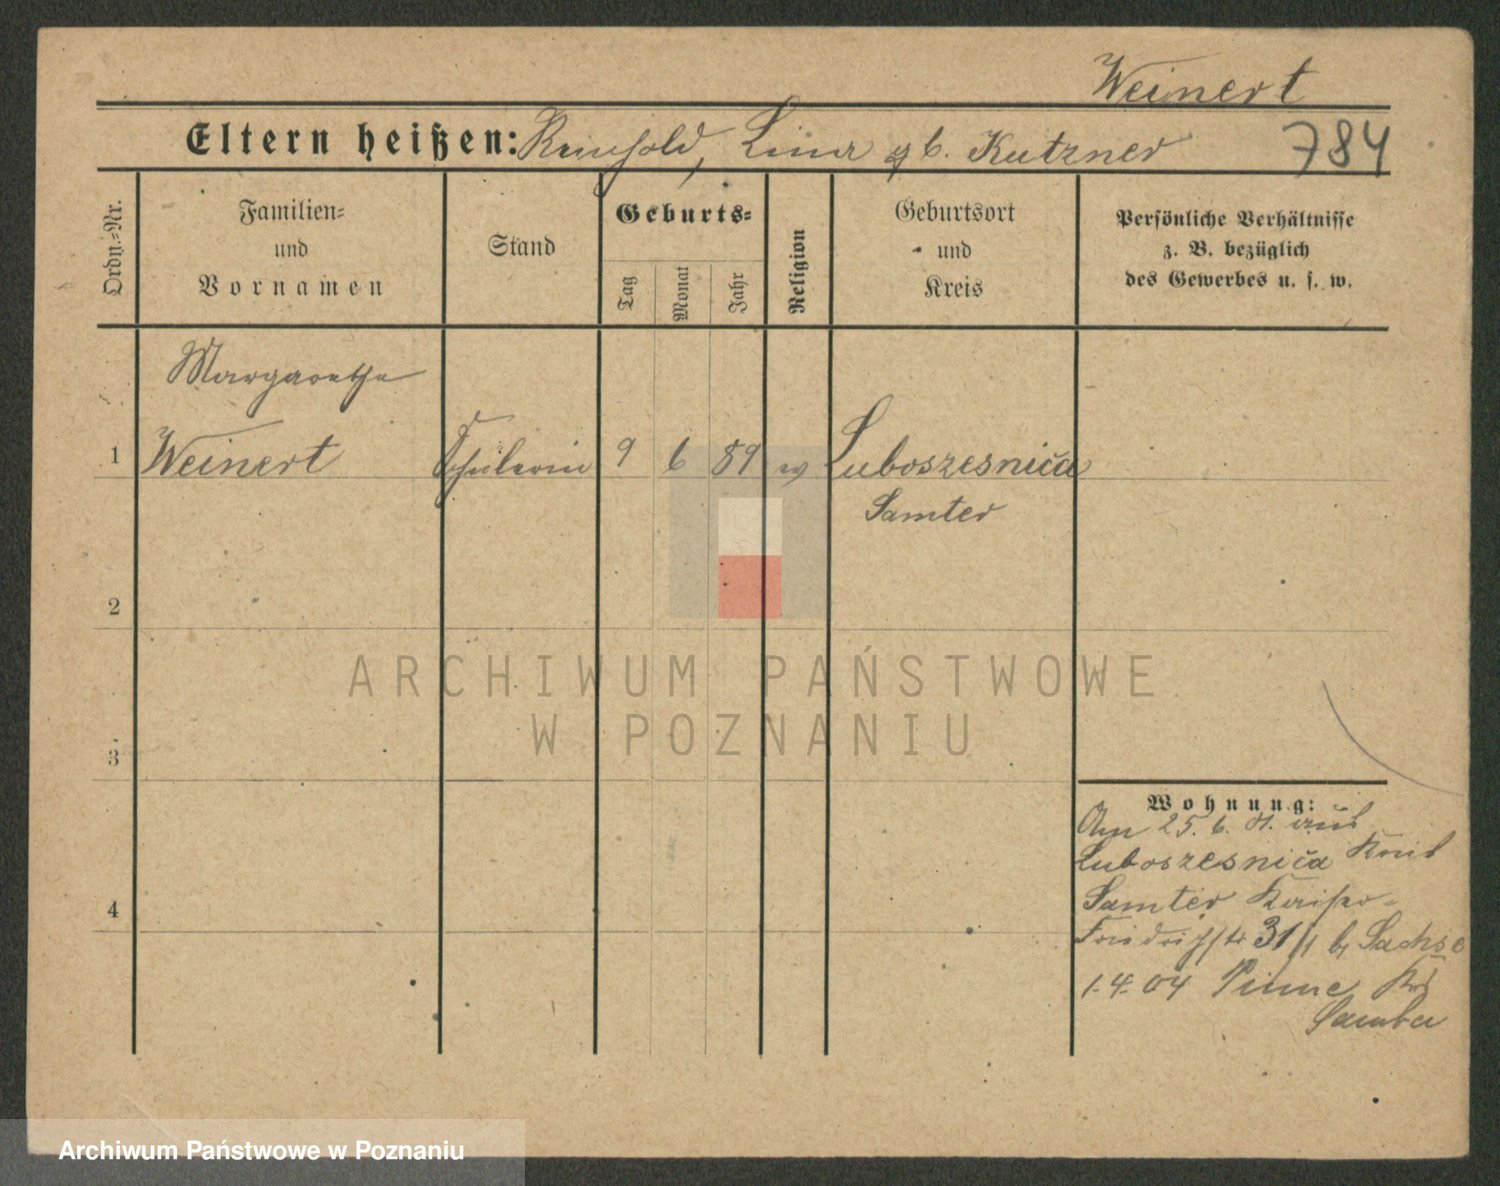 Weinert
Eltern heißen: Reinhold, Lina gb. Kutzner 784
Ordn.-Nr.
Familien-
und
Vornamen
Stand
Geburts-
Tag
Monat
Jahr
Religion
Geburtsort
und
Kreis
Persönliche Verhältnisse
z. B. bezüglich
des Gewerbes u. s. w.
Margarethe
1 Weinert Schülerin 9 6 89 Luboszesnica
Samter
2
3
4
Wohnung:
Am 25. 6. 01. aus
Luboszesnica Kreis
Samter Kaiser-
Friedrichstr 31 b/ Sachse
1.4.04 Pinne Krs
Samter
ARCHIWUM PAŃSTWOWE
W POZNANIU
Archiwum Państwowe w Poznaniu